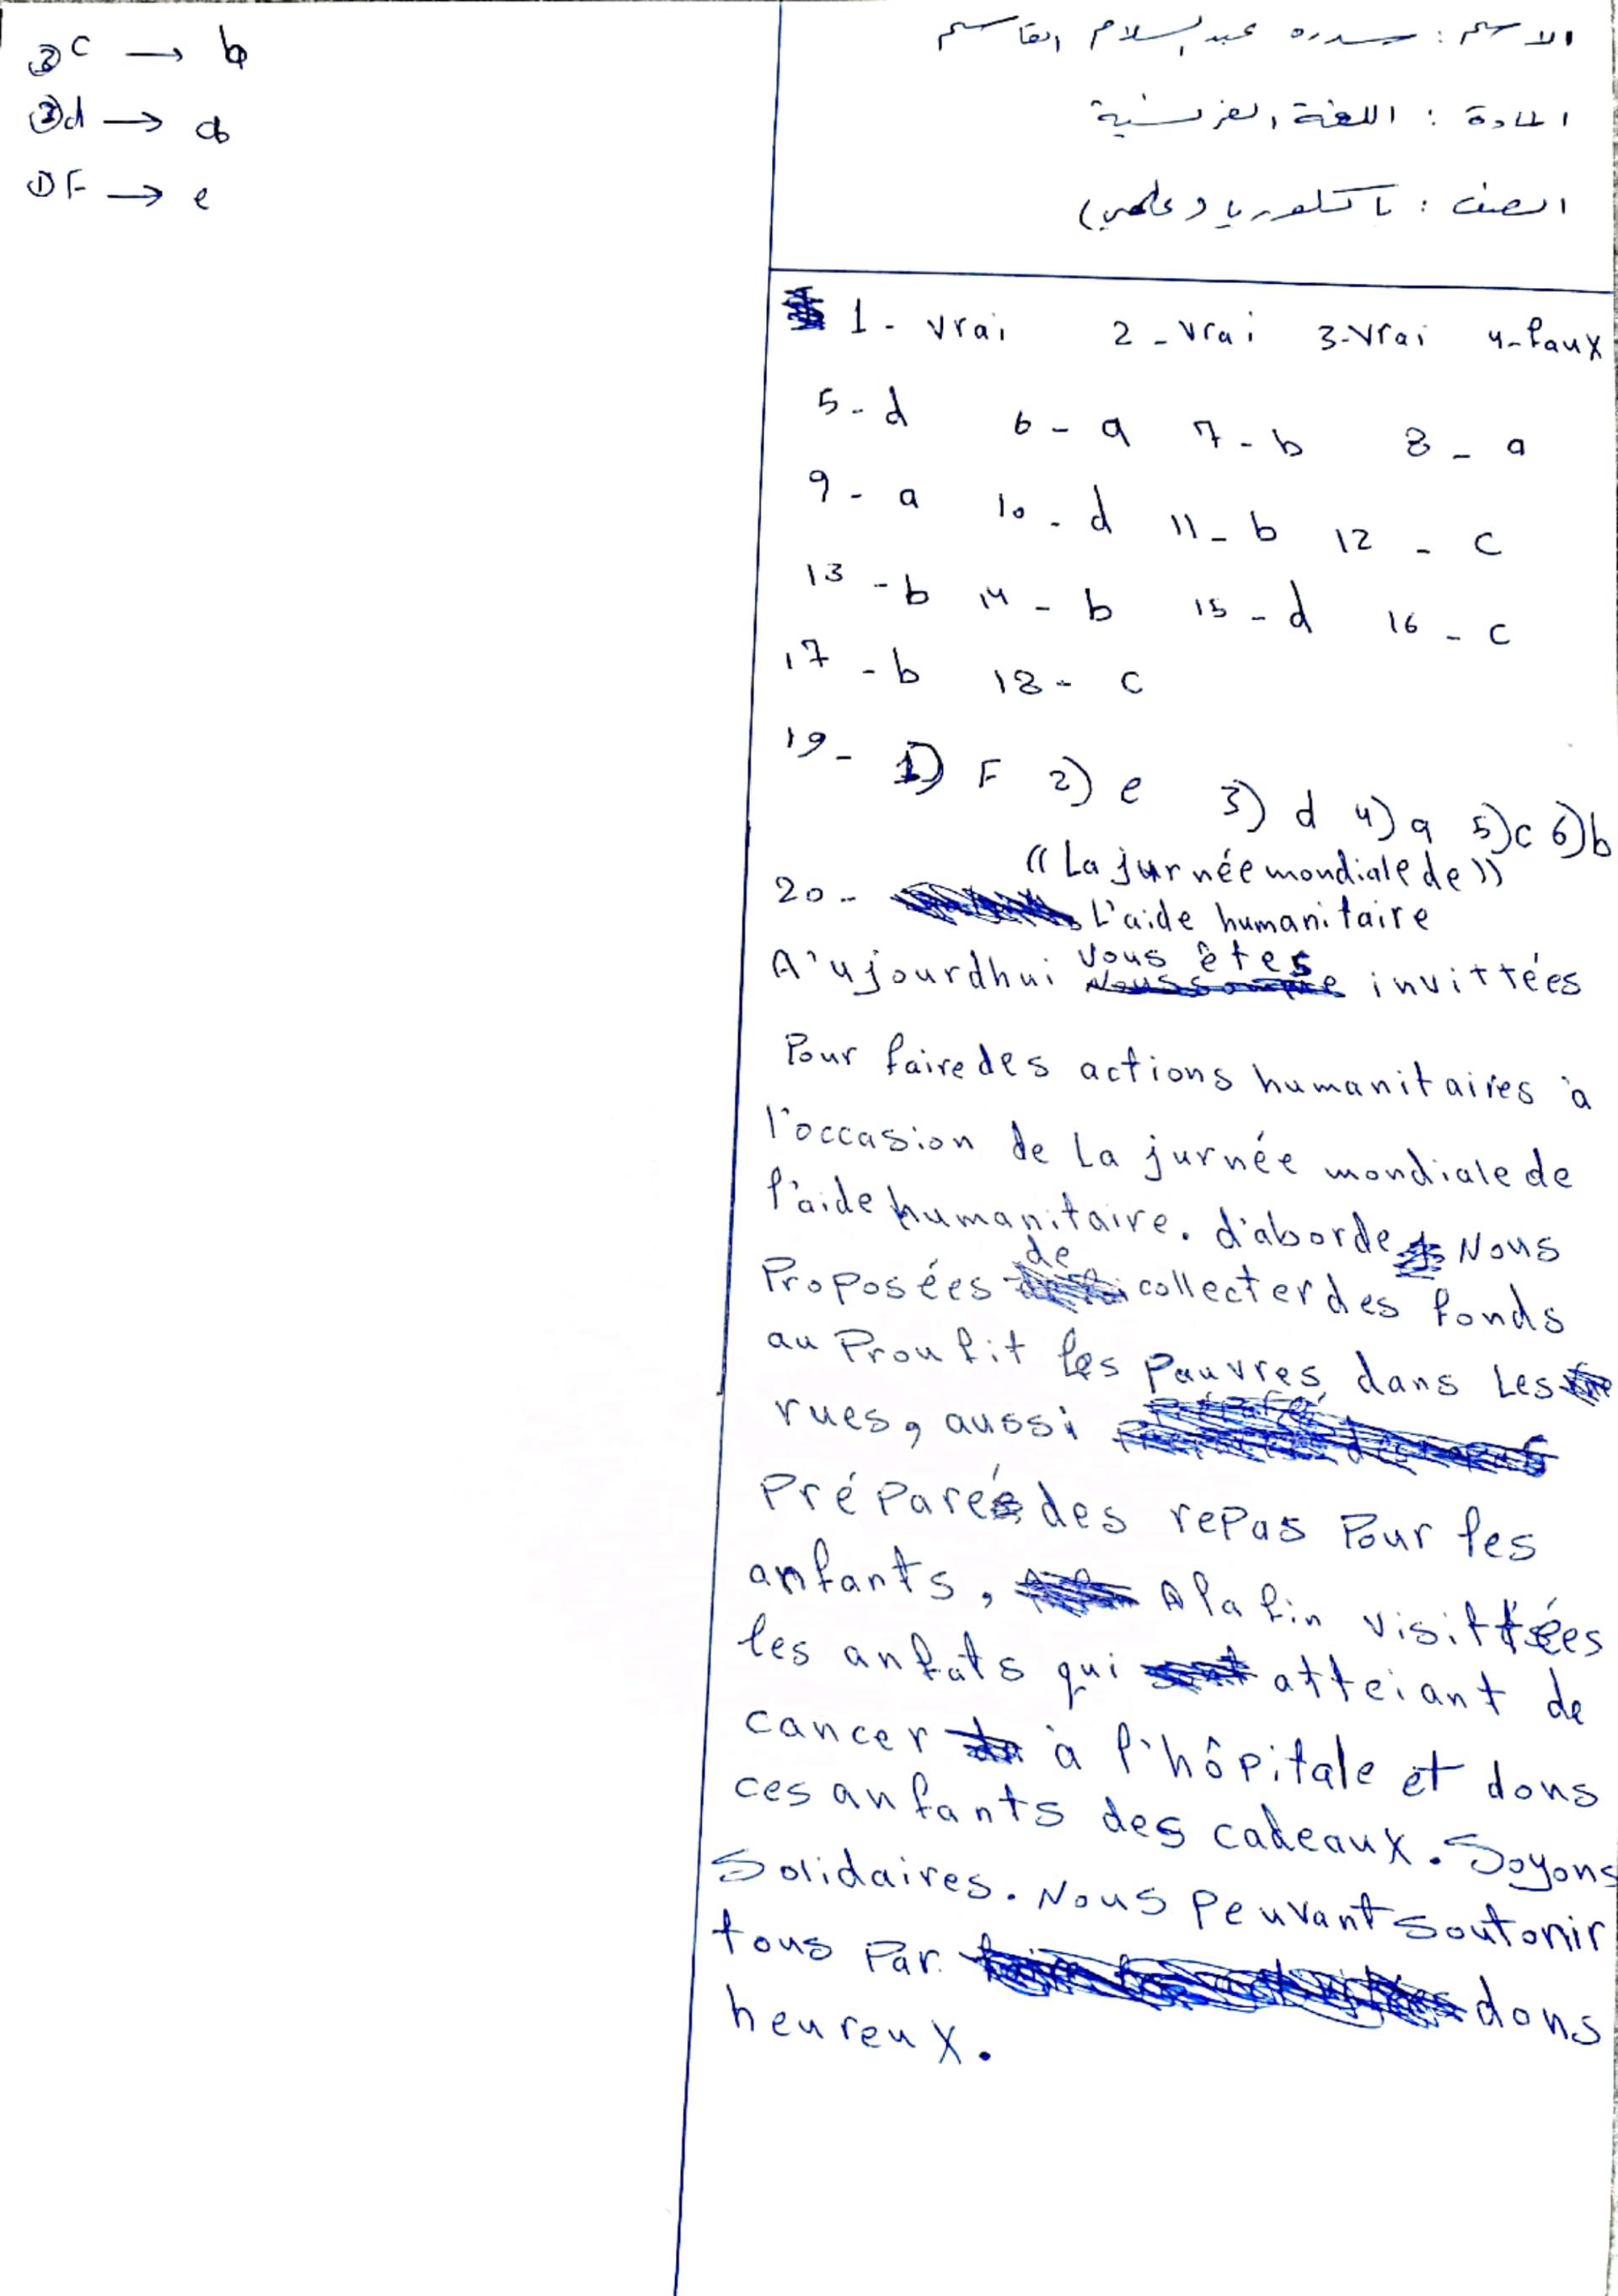 الاسم : سدره عبد السلام القاسم
المادة : اللغة الفرنسية
الصف : باكلوريا (علمي)
② c → b
③ d → a
① F → e
1 - vrai 2 - vrai 3 - vrai 4 - faux
5 - d 6 - a 7 - b 8 - a
9 - a 10 - d 11 - b 12 - c
13 - b 14 - b 15 - d 16 - c
17 - b 18 - c
19 - 1) F 2) e 3) d 4) a 5) c 6) b
(( La jurnée mondiale de ))
20 - L'aide humanitaire
A'ujourdhui vous êtes invittées
Pour faire des actions humanitaires à
l'occasion de La jurnée mondiale de
l'aide humanitaire. d'aborde Nous
Proposées de collecter des fonds
au Proufit les pauvres dans Les
rues, aussi
Préparés des repas Pour les
anfants, A la fin visittées
les anfats qui atteiant de
cancer à l'hôpitale et dons
ces anfants des cadeaux. Soyons
Solidaires. Nous Peuvant soutonir
tous Par dons
heureux.